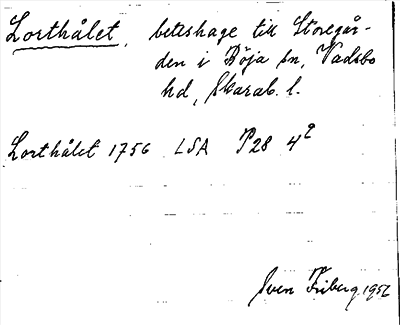 Lorthålet, beteshage till Storegår-
den i Böja sn, Vadsbo
hd, Skarab. l.
Lorthålet 1756 LSA P28 4²
Sven Friberg 1956